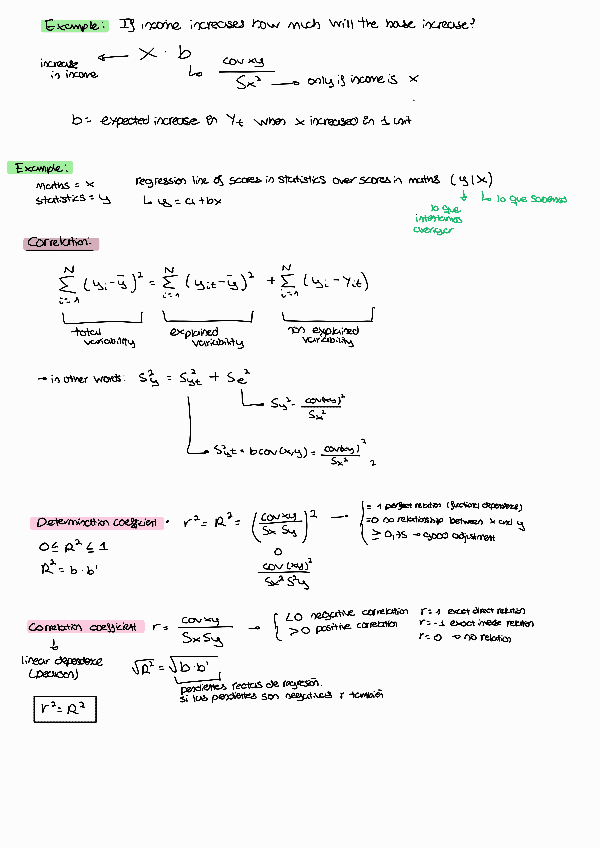 Example: If income increases how much will the base increase?
increase in income ← x · b ↳ cov xy / Sx² → only if income is x
b = expected increase in Yt when x increased in 1 unit
Example:
maths = x regression line of scores in statistics over scores in maths (y|x)
statistics = y ↳ y = a + bx ↓ ↳ lo que sabemos
lo que
intentamos
averiguar
Correlation:
N Σ i=1 (yi - ȳ)² = N Σ i=1 (yit - ȳ)² + N Σ i=1 (yi - Yit)
total variability explained variability non explained variability
→ in other words: S²y = S²yt + Se²
↳ Sy² - cov(xy)² / Sx²
↳ S²yt = b cov(x,y) = cov(xy)² / Sx² 2
Determination coefficient · r² = R² = (cov xy / Sx Sy)² → { = 1 perfect relation (functional dependence)
= 0 no relationship between x and y
≥ 0,75 → good adjustment
0 ≤ R² ≤ 1 0
R² = b · b' cov (xy)² / Sx² S²y
Correlation coefficient r = cov xy / Sx Sy → { <0 negative correlation r = 1 exact direct relation
>0 positive correlation r = -1 exact inverse relation
r = 0 → no relation
↓
linear dependence
(pearson) √R² = √b · b'
pendientes rectas de regresión.
si las pendientes son negativas r también
r² = R²